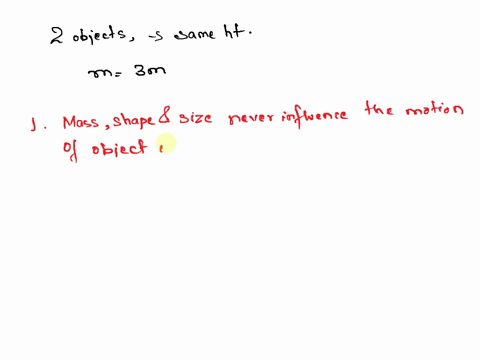 2 objects, → same ht.
m = 3m
1. Mass, shape & size never influence the motion
of object